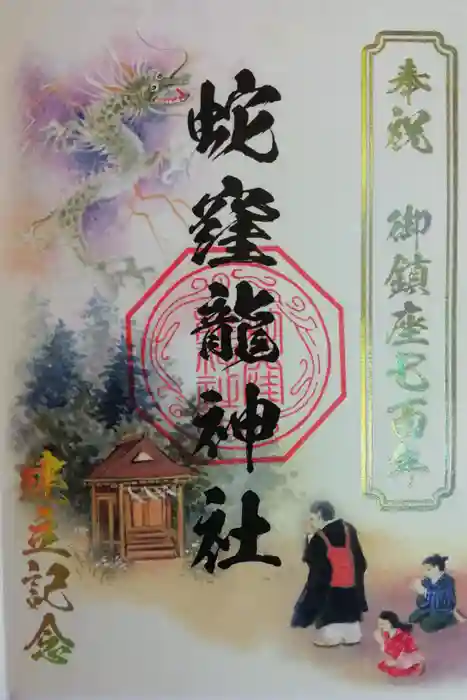 奉祝 御鎮座七百年
蛇窪龍神社
建立記念